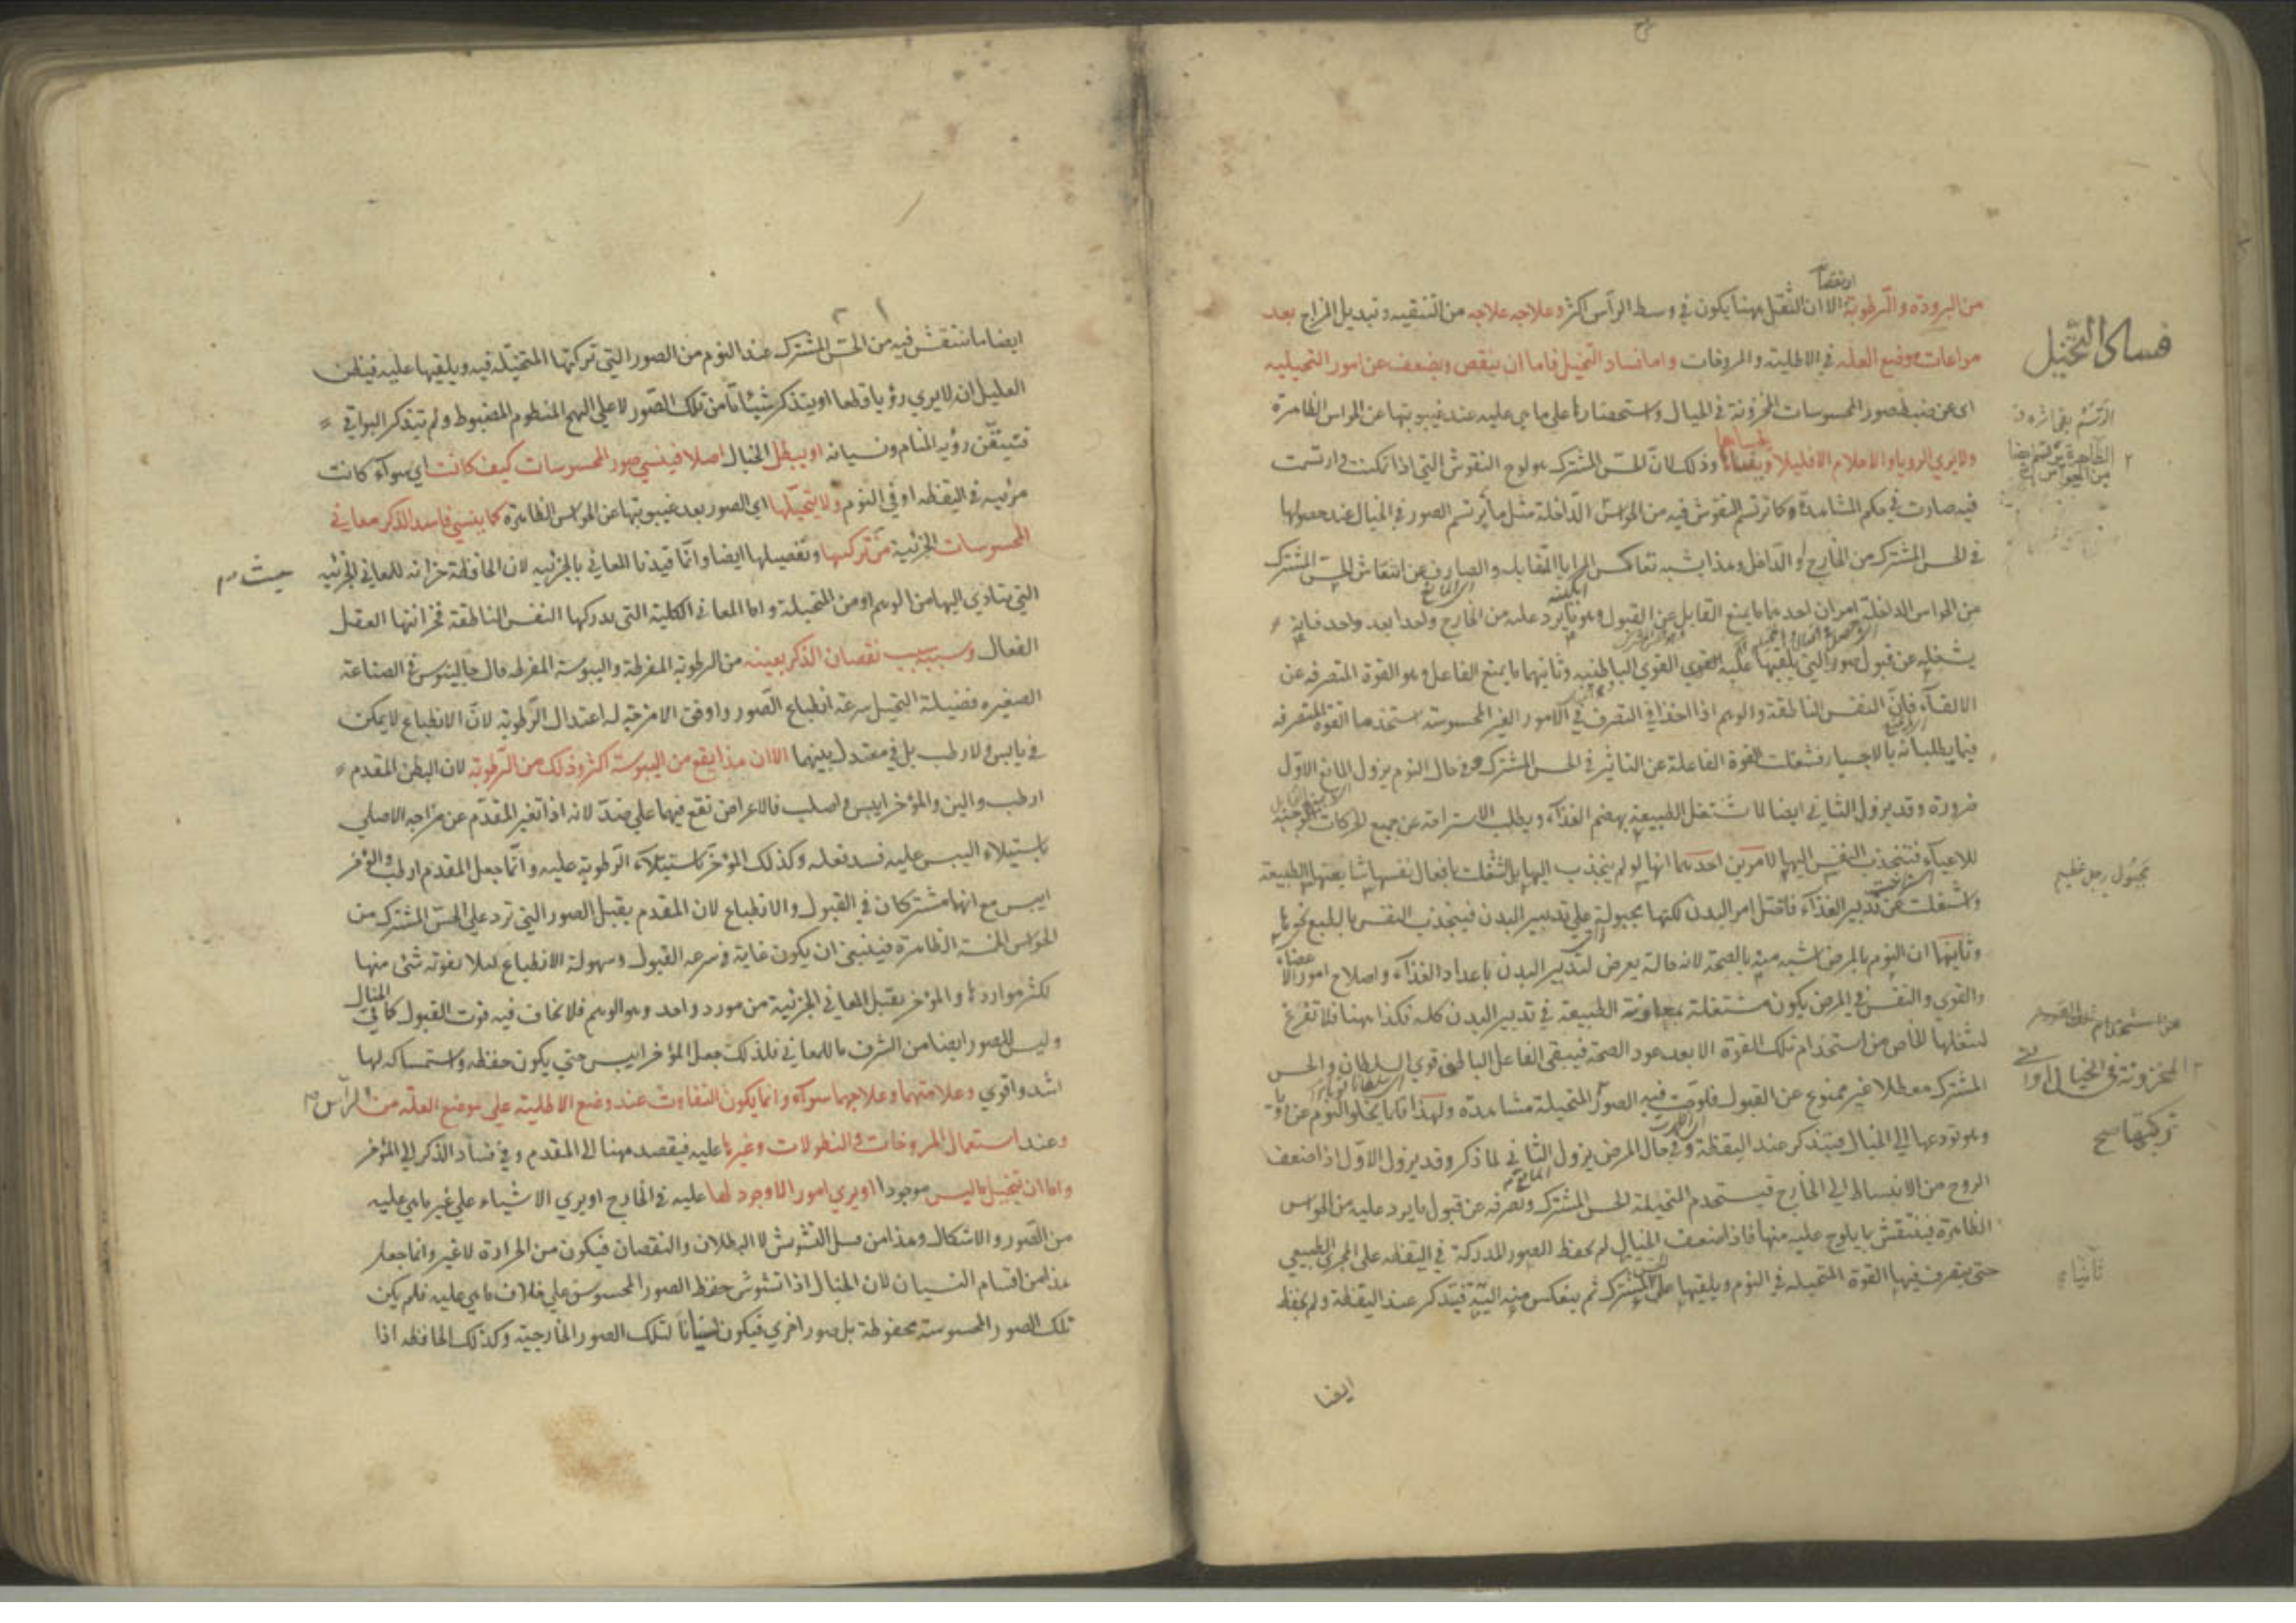 من البرودة والرطوبة الا ان الثقل ههنا يكون في وسط الرأس اكثر وعلاجه علاجه من التنقيه وتبديل المزاج بعد
فساد التخيل
مراعات موضع العله في الاطلية والمروخات واما فساد التخيل فاما ان ينقص ويضعف عن امور التخيليه
اى عن ضبط صور المحسوسات المخزونة في الخيال واستحضارها على ما هي عليه عند غيبوبتها عن الحواس الظاهرة
ولا يري الرويا والاحلام الا قليلا وذلك لان الحس المشترك هو لوح النقوش التي اذا تمكنت وارتسمت
فيه صارت في حكم المشاهدة وكما ترتسم النقوش فيه من الحواس الداخلة مثل ما يرتسم الصور في الخيال عند حصولها
في الحس المشترك من الخارج والداخل وهذا يشبه تعاكس المرايا المتقابلة والصارف عن انتقاش الحس المشترك
من الحواس الداخلة امران احدهما ما يمنع القابل عن القبول وهو ما يرد عليه من الخارج واحدا بعد واحد فانه
يشغله عن قبول صور التي يلقيها عليه القوي الباطنيه وثانيهما ما يمنع الفاعل وهو القوة المتصرفه عن
الالقاء فان النفس الناطقة والوهم اذا اخذا في التصرف في الامور الغير المحسوسة استخدما القوة المتصرفه
فيما يطلبانه بالاجبار فشغلت القوة الفاعلة عن التاثير في الحس المشترك وفي حال النوم يزول المانع الاول
ضرورة وقد يزول الثاني ايضا لاشتغال الطبيعة بهضم الغذاء ويطلب الاستراحة عن جميع الحركات الموجبة
للاعياء فتنجذب النفس اليها لامرين احدهما انها لو لم ينجذب اليها بل اشتغلت بافعال نفسها شايعتها الطبيعة
مجبول رجل عظيم
واشتغلت عن تدبير الغذاء فاختل امر البدن لكنها مجبولة على تدبير البدن فينجذب النفس بالطبع نحوها
وثانيها ان النوم بالمرض اشبه منه بالصحة لانه حالة يعرض لتدبير البدن باعداد الغذاء واصلاح امور الاعضاء
والقوي والنفس في المرض يكون مشتغلة بمعاونة الطبيعة في تدبير البدن كله فكذا ههنا فلا تفرغ
لشغلها الخاص من استخدام تلك القوة الا بعد عود الصحة فيبقى الفاعل الباطني قوي السلطان والحس
المخزونة في الخيال او التي
المشترك معطلا غير ممنوع عن القبول فلوحت فيه الصور المتخيلة مشاهدة ولهذا قلما يخلو النوم عن رويا
تركبها صح
وهو تودعها الى الخيال فيتذكر عند اليقظة وفي حال المرض يزول الثاني لما ذكر وقد يزول الاول اذا ضعف
الروح من الانبساط الى الخارج فيستخدم المتخيلة الحس المشترك وتصرفه عن قبول ما يرد عليه من الحواس
الظاهرة فينتقش ما يلوح عليه منها فاذا ضعف الخيال لم يحفظ الصور المدركة في اليقظه على المجرى الطبيعي
ثانيا
حتى يتصرف فيها القوة المتخيله في النوم ويلقيها على المشترك ثم ينعكس منه اليه فيتذكر عند اليقظة ولم يحفظ
ايضا
ايضا ما ينتقش فيه من الحس المشترك عند النوم من الصور التي تركبها المتخيله فيه ويلقيها عليه فيظن
العليل انه لا يري رؤيا قطعا او يتذكر شيئا ما من تلك الصور لا على النهج المنظوم المضبوط ولم يتذكر البواقي
فتيقن رؤيه المنام ونسيانه او يبطل الخيال اصلا فينسي صور المحسوسات كيف كانت اي سواء كانت
مرئيه في اليقظه او في النوم ولا يتخيلها اي الصور بعد غيبوبتها عن الحواس الظاهرة كما ينسي فاسد الذكر معاني
المحسوسات الجزئية من تركيبها وتفصيلها ايضا وانما قيدنا المعاني بالجزئيه لان الحافظة خزانه للمعاني الجزئيه
التي يتادى اليها من الوهم او من المتخيلة واما المعاني الكلية التي يدركها النفس الناطقة فخزانتها العقل
الفعال وسببه سبب نقصان الذكر بعينه من الرطوبة المفرطة واليبوسة المفرطه قال جالينوس في الصناعة
الصغيره فضيلة التخيل سرعة انطباع الصور واوفق الامزجة له اعتدال الرطوبة لان الانطباع لا يمكن
في يابس ولا رطب بل في معتدل بينهما الا ان هذا يقع من اليبوسة اكثر وذلك من الرطوبة لان البطن المقدم
ارطب والين والمؤخر ايبس واصلب فالاعراض تقع فيهما على ضد لانه اذا تغير المقدم عن مزاجه الاصلي
باستيلاء اليبس عليه فسد فعله وكذلك المؤخر باستيلاء الرطوبة عليه وانما جعل المقدم ارطب والمؤخر
ايبس مع انهما مشتركان في القبول والانطباع لان المقدم يقبل الصور التي ترد على الحس المشترك من
الحواس الخمسة الظاهرة فينبغي ان يكون غاية في سرعه القبول وسهولة الانطباع لئلا يفوته شئ منها
لكثر مواردها والمؤخر يقبل المعاني الجزئية من مورد واحد وهو الوهم فلا نخاف فيه فوت القبول كما في الخيال
وليس للصور ايضا من الشرف ما للمعاني فلذلك جعل المؤخر ايبس حتى يكون حفظه واستمساكه لها
اشد واقوي وعلامتهما وعلاجهما سواء وانما يكون التفاوت عند وضع الاطلية على موضع العلة من الرأس
وعند استعمال المروخات والنطولات وغيرها عليه فيقصد ههنا الى المقدم وفي فساد الذكر الى المؤخر
واما ان يتخيل ما ليس موجودا او يري امورا لا وجود لها عليه في الخارج او يري الاشياء على غير ما هي عليه
من الصور والاشكال وهذا من قبيل التشوش لا البطلان والنقصان فيكون من الحرارة لا غير وانما جعل
هذا من اقسام النسيان لان الخيال اذا تشوش حفظ الصور المحسوس على خلاف ما هي عليه فلم يكن
تلك الصور المحسوسة محفوظة بل صور اخري فيكون نسيانا لتلك الصور الخارجيه وكذلك الحافظه اذا